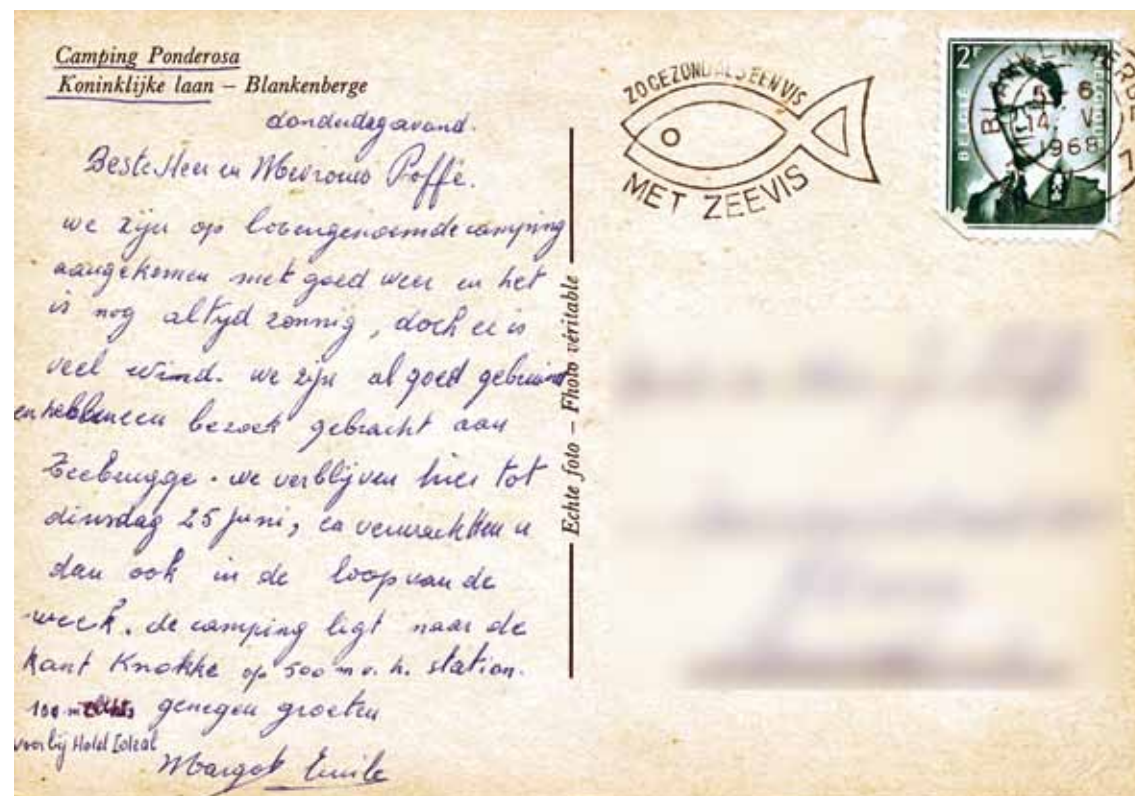 Camping Ponderosa
Koninklijke laan – Blankenberge
donderdagavond.
Beste Heer en Mevrouw Poffé.
we zijn op bovengenoemde camping
aangekomen met goed weer en het
is nog altijd zonnig, doch er is
veel wind. we zijn al goed gebruind
en hebben een bezoek gebracht aan
Zeebrugge. we verblijven hier tot
dinsdag 25 juni, en verwachten u
dan ook in de loop van de
week. de camping ligt naar de
kant Knokke op 500 m v. h. station.
100 m genegen groeten
voorbij Hotel Ideal
Margot Emile
Echte foto – Photo véritable
ZO GEZOND ALS EEN VIS
MET ZEEVIS
2F
BELGIË BELGIQUE
BLANKENBERGE
14. V
1968